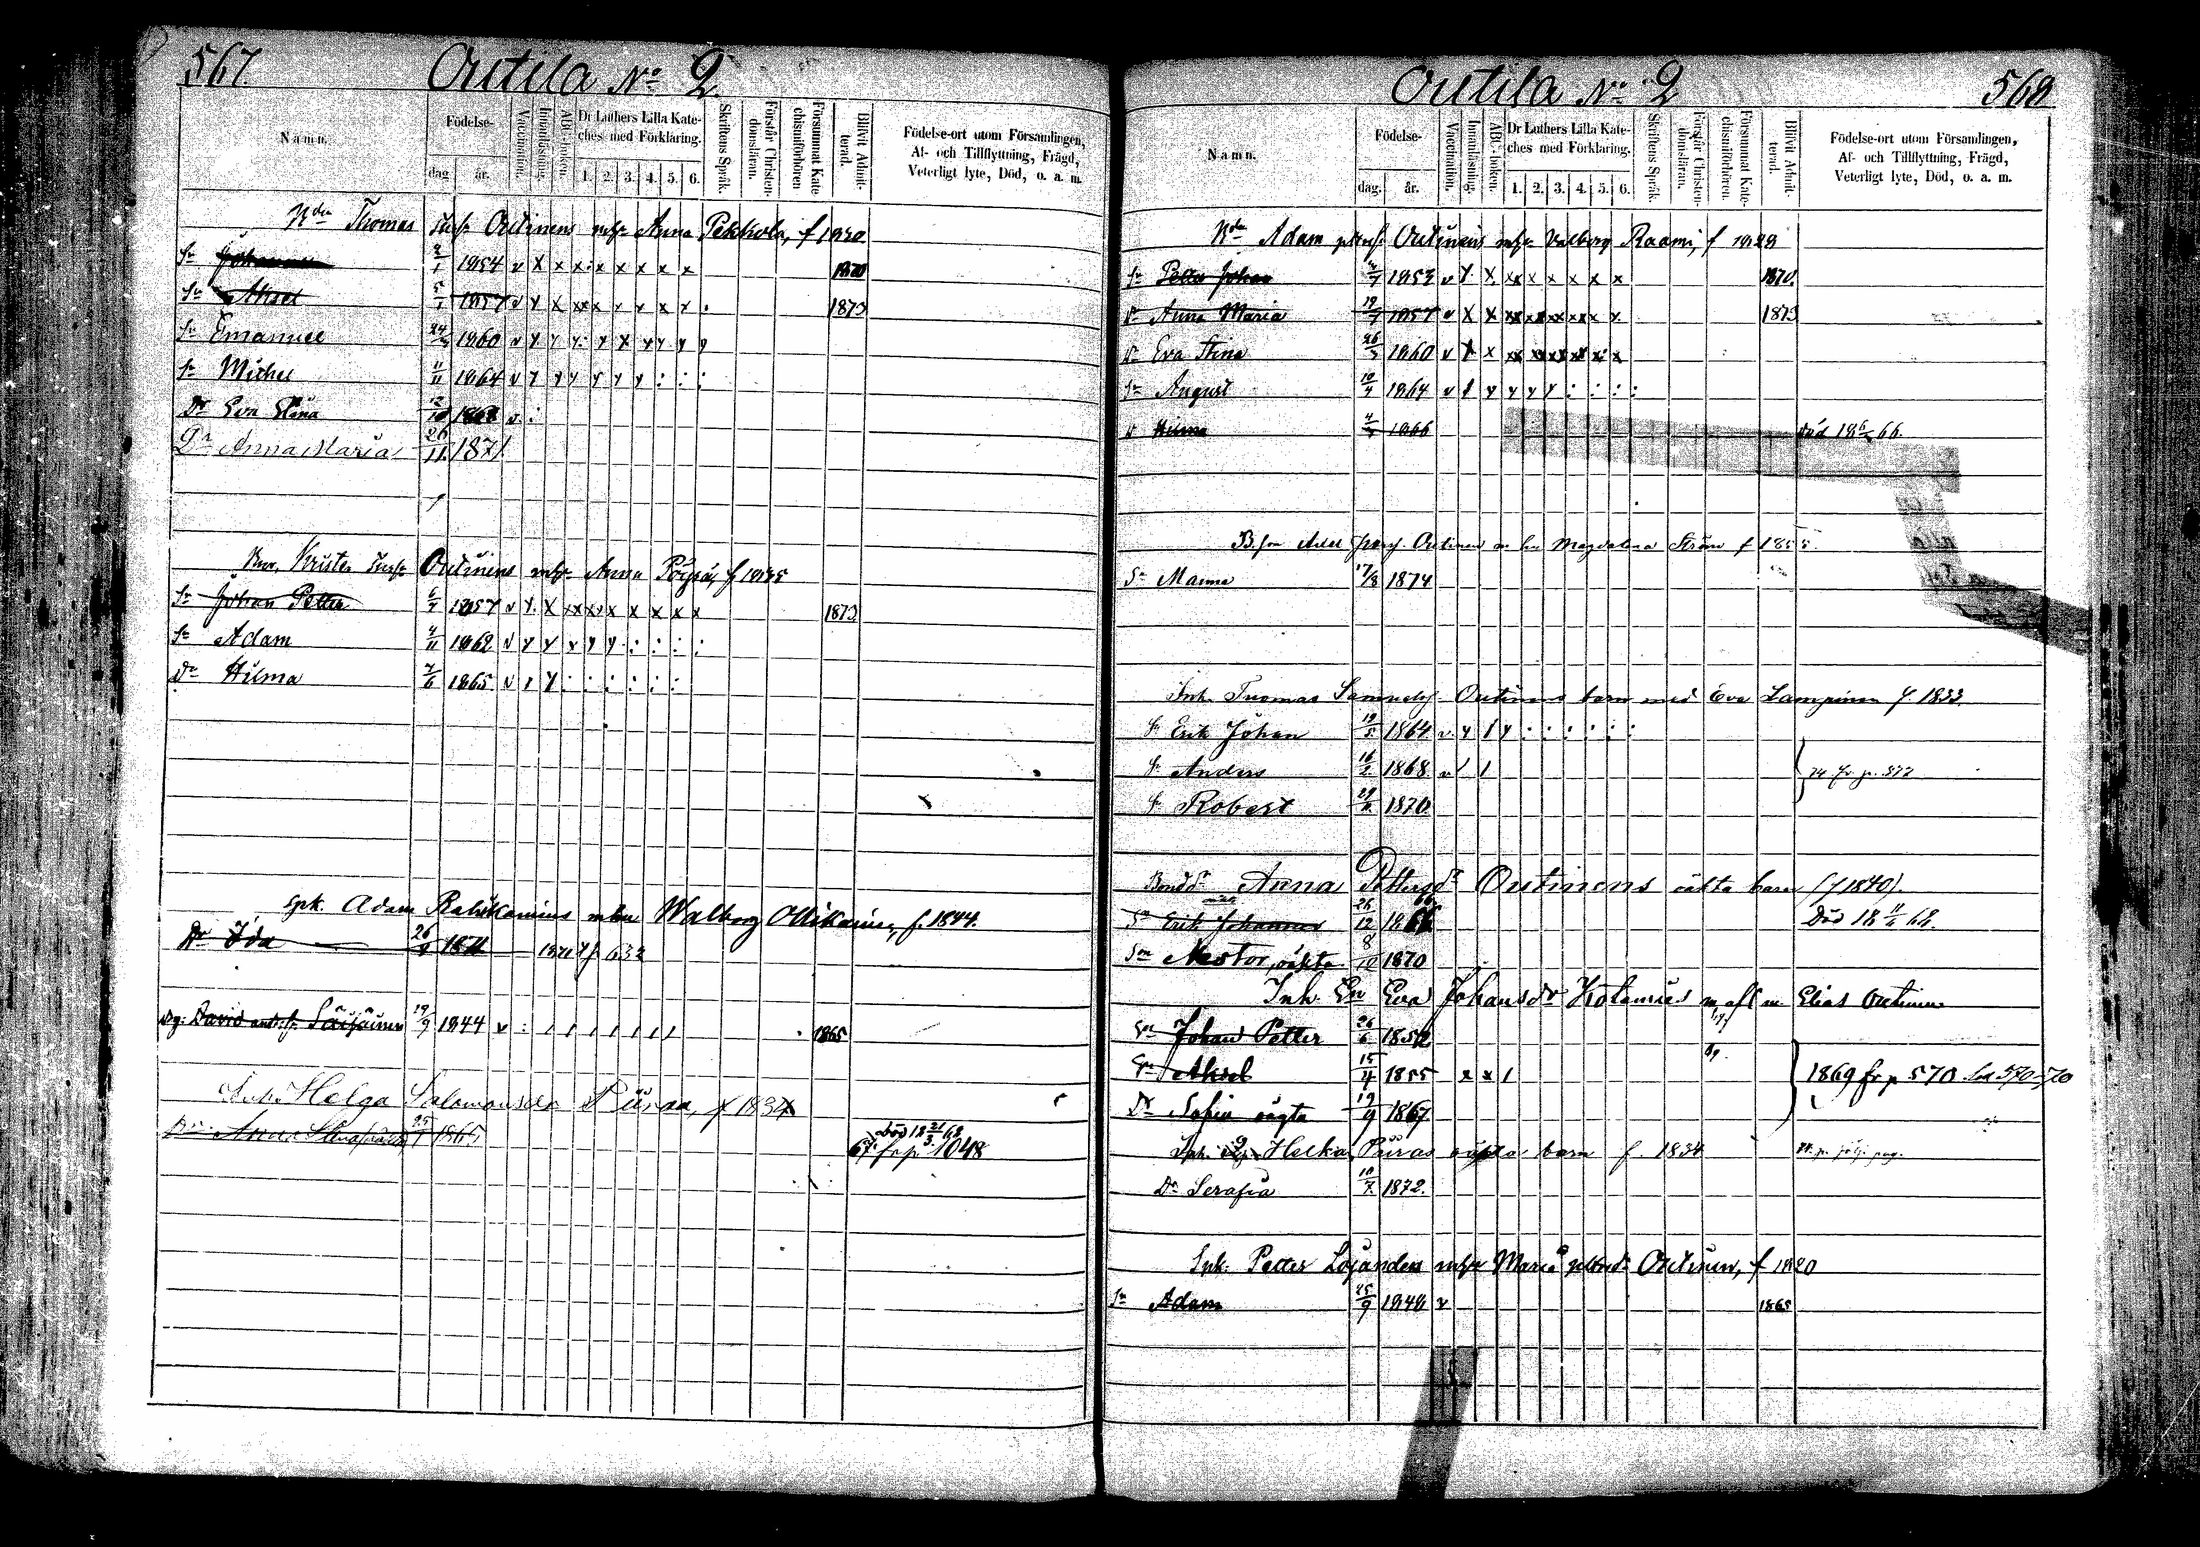 567. Outila No 2
Namn.
Födelse-
dag
år.
Vaccination.
Innanläsning.
ABC-boken.
Dr Luthers Lilla Kate-
ches med Förklaring.
1. 2. 3. 4. 5. 6.
Skriftens Språk.
Förstår Christen-
domsläran.
Försummat Kate-
chismiförhören
Blifvit Admit-
terad.
Födelse-ort utom Församlingen,
Af- och Tillflyttning, Frägd,
Veterligt lyte, Död, o. a. m.
Thomas Outinens Anna Pekkola, f 1820
Sn Johannes 2/1 1854 v x x x x x x x x 1870
Sn Aksel 5/1 1857 v x x x x x x x 1873
Sn Emanuel 24/3 1860 v
Sn Michel 11/11 1864 v
Dr Eva Stina 12/10 1868 v
Dr Anna Maria 26/11 1871.
Krister Outinens Anna Pöyrä, f 1835
Sn Johan Petter 6/7 1857 v x x x x x x x x 1873
Sn Adam 4/11 1862 v
Dr Hilma 7/6 1865 v
Adam Rahikainens Walborg Ollikainen, f. 1844.
Dr Ida 26/8 1871 1871 632
David Säijäinen 19/9 1844 v 1865
Inh. Helga Salomonsdr Piiraa, f 1834
Anna Stina 25/1 1865 död 18 21/3 68
67 fr p. 1048
Outila No 2 568
Namn.
Födelse-
dag.
år.
Vaccination.
Innanläsning.
ABC-boken.
Dr Luthers Lilla Kate-
ches med Förklaring.
1. 2. 3. 4. 5. 6.
Skriftens Språk.
Förstår Christen-
domsläran.
Försummat Kate-
chismiförhören.
Blifvit Admit-
terad.
Födelse-ort utom Församlingen,
Af- och Tillflyttning, Frägd,
Veterligt lyte, Död, o. a. m.
Adam Outinens Valborg Raami, f 1828
Sn Petter Johan 1853 v x x x x x x x 1870.
Dr Anna Maria 19/7 1857 v x x x x x x x 1873
Dr Eva Stina 26/3 1860 v x x x x x x x x
Sn August 10/4 1864 v
Dr Hilma 1866 död 18 6/5 66.
Outinen Magdalena Ström f 1855.
Sn Manne 17/8 1874
Inh. Tuomas Samuelsj Outinens barn med Eva Lampinen f. 1833.
Sn Erik Johan 19/5 1864 v
Sn Anders 16/2 1868 v 74 fr p. 572
Sn Robert 1870
Bondd Anna Pettersdr Outinens oäkta barn (f 1840).
Sn Erik Johannes 26/12 1866 Död 18 11/4 68.
Son Nestor, oäkta 8/10 1870
Inh. En Eva Johansdr Kolamies m afl m Elias Outinen
Sn Johan Petter 26/6 1852
Sn Aksel 15/4 1855 x x 1 1869 fr p 570
Dr Sofia oägta 19/9 1867
Inh. Helka Piiras oäkta barn f. 1834
Dr Serafia 10/7 1872.
Inh. Petter Lojanders Maria Outinen, f 1820
Sn Adam 25/9 1848 v 1865